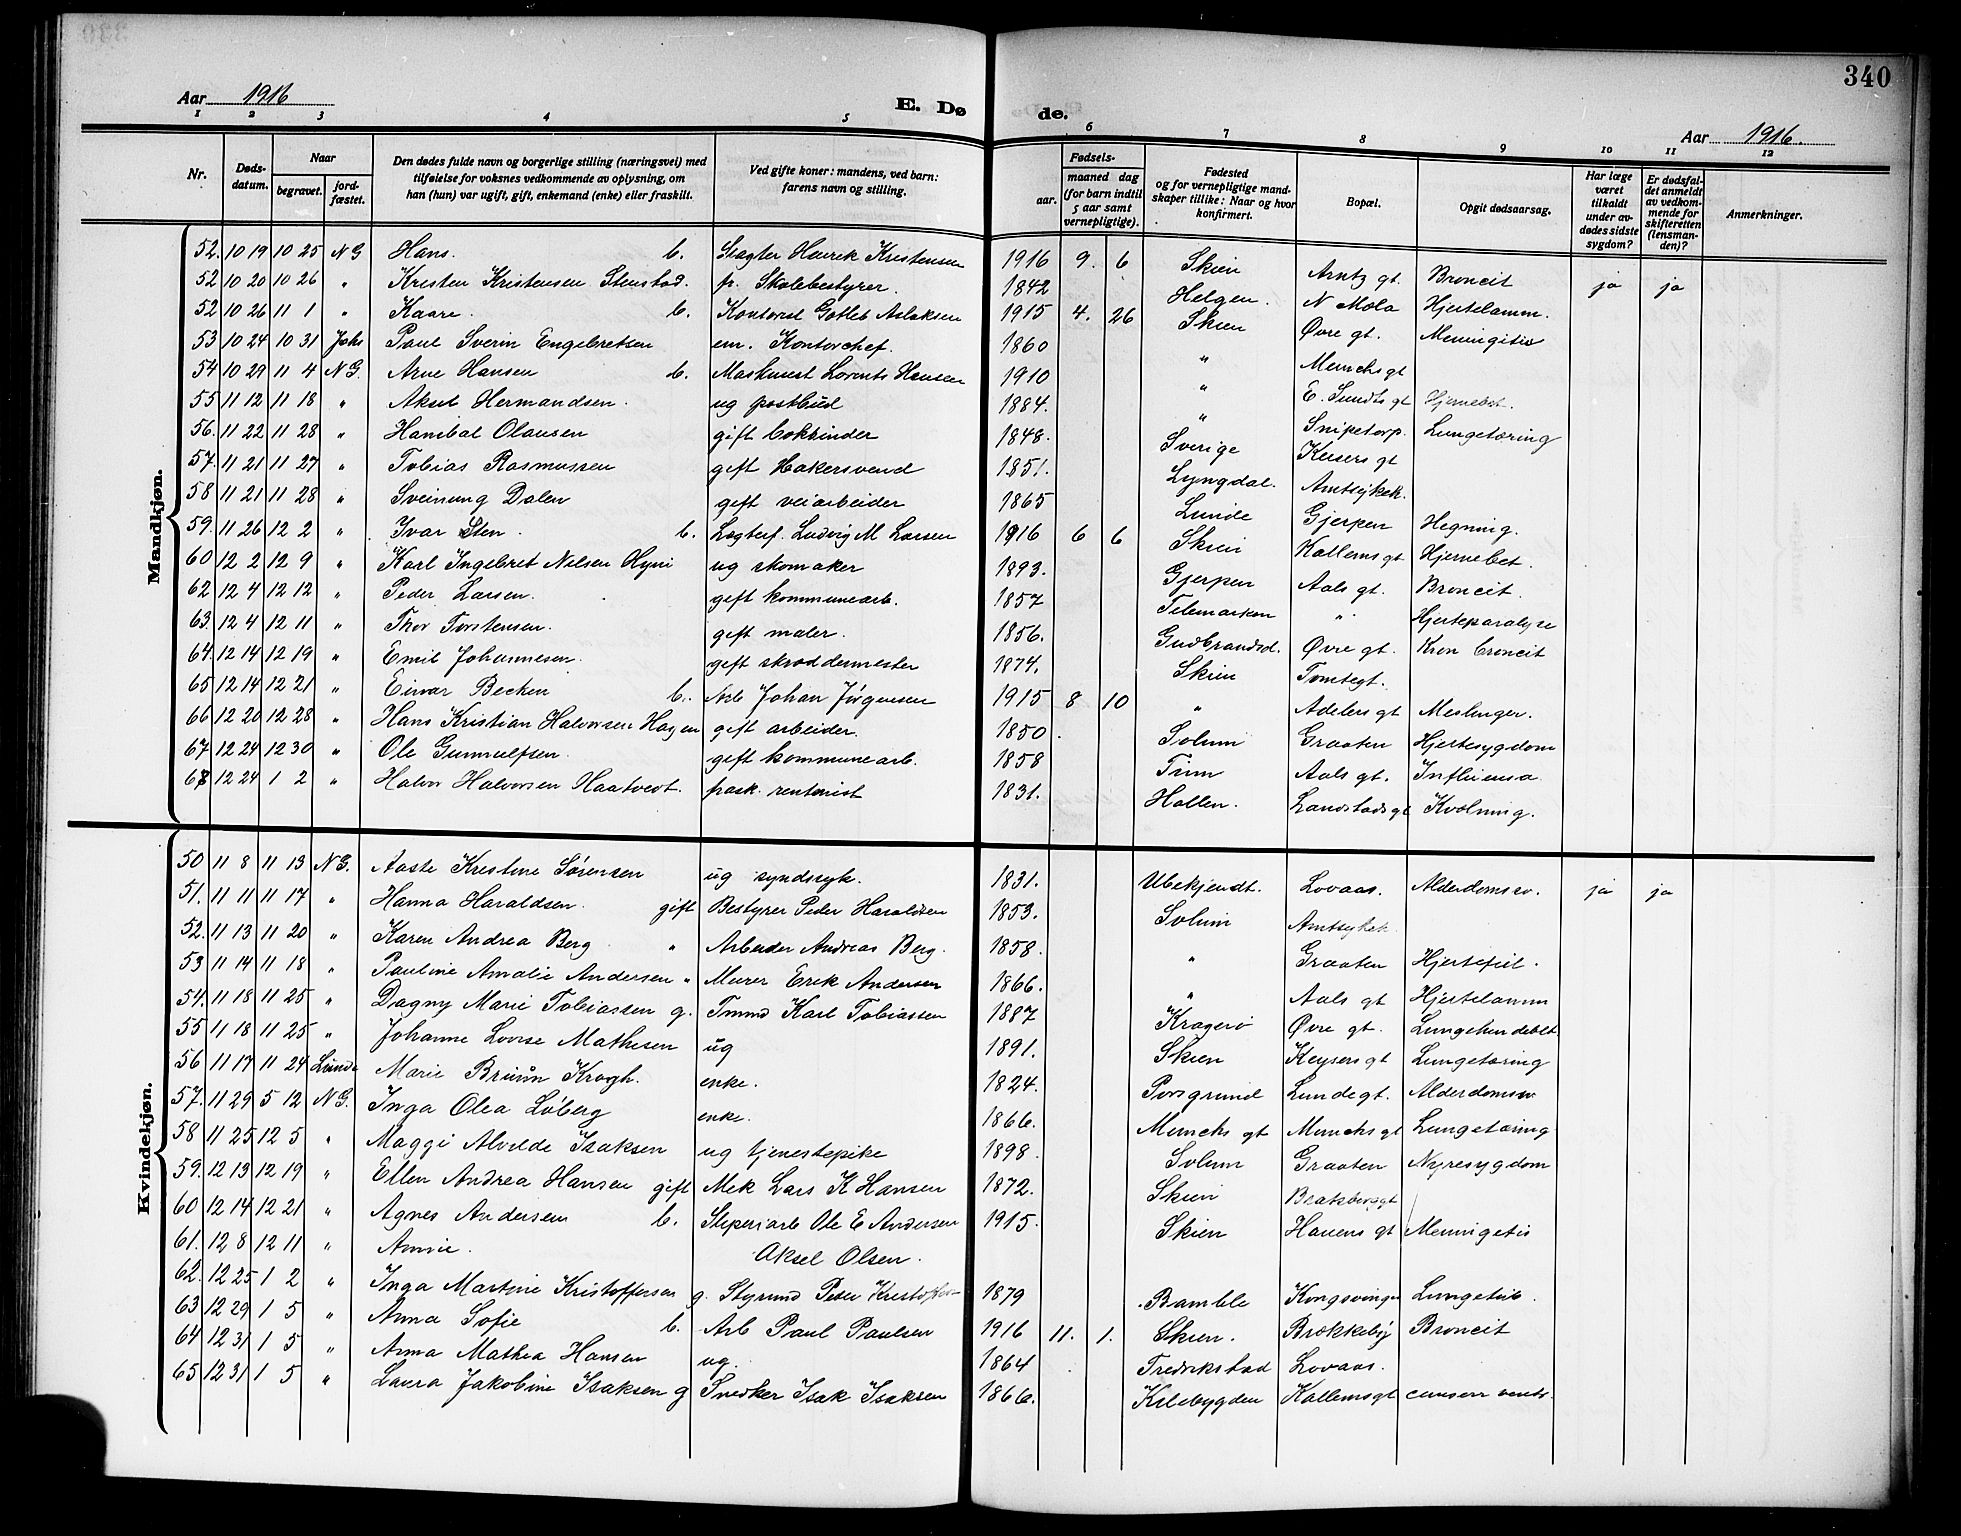 340
Aar 1916
E. Dø de.
Aar 1916.
1 2 3 4 5 6 7 8 9 10 11 12
Nr. Døds-datum. Naar begravet. jord-fæstet. Den dødes fulde navn og borgerlige stilling (næringsvei) med tilføielse for voksnes vedkommende av oplysning, om han (hun) var ugift, gift, enkemand (enke) eller fraskilt. Ved gifte koner: mandens, ved barn: farens navn og stilling. Fødsels- aar. maaned dag (for barn indtil 5 aar samt vernepligtige). Fødested og for vernepligtige mandskaper tillike: Naar og hvor konfirmert. Bopæl. Opgit dødsaarsag. Har læge været tilkaldt under avdødes sidste sygdom? Er dødsfaldet anmeldt av vedkommende for skifteretten (lensmanden)? Anmerkninger.
Mandkjøn.
52. 10 19 10 25 NG Hans. b. Slagter Henrik Kristensen 1916 9. 6 Skien Arntz gt. Broncit ja ja
52 10 20 10 26 " Kristen Kristensen Stenstad. fr. Skolebestyrer. 1842 Helgen. N Mæla Hjertelamm.
52 10 26 11 1 " Kaare. b. Kontorist Gotleb Aslaksen 1915 4. 26 Skien Øvre gt. Meningitis
53 10 24 10 31 Johs Paul Sverin Engebretsen em. Kontorchef. 1860 " Munchs gt
54 10 29 11 4 NG. Arne Hansen b. Maskinist Lorents Hansen 1910 " E. Sundts gt Hjernebet.
55 11 12 11 18 " Aksel Hermandsen. ug postbud 1884. " Snipetorp. Lungetæring
56. 11 22 11 28 " Hanibal Olausen gift bokbinder 1848. Sverige Keisers gt
57. 11 21 11 27 " Tobias Rasmussen gift Hakersvend 1851. Lyngdal. Amtsykeh.
58 11 21 11 28 " Sveinung Dalen gift veiarbeider 1865 Lunde Gjerpen Hegning.
59. 11 26 12 2 " Ivar Sten. b. Lagterf. Ludvig M Larsen 1916 6 6 Skien Kallems gt Hjernebet.
60 12 2 12 9 " Karl Ingebret Nilsen Hyni ug skomaker 1893. Gjerpen Aals gt. Broncit.
62 12 4 12 12 " Peder Larsen. gift kommunearb. 1857 Telemarken " Hjerteparalyse
63. 12 4 12 11 " Thor Torstensen. gift maler. 1856. Gudbrandsd. Øvre gt. Kron broncit
64. 12 14 12 19 " Emil Johannesen. gift skræddermester 1874. Skien Tomtegt.
65 12 14 12 21 " Einar Becken b. Arb Johan Jørgensen 1915 8 10 " Adelers gt Meslinger.
66 12 20 12 28 " Hans Kristian Halvorsen Hagen gift arbeider. 1850. Solum Graaten Hjertesygdom
67 12 24 12 30 " Ole Gunnulfsen. gift kommunearb. 1858 Tinn Aals gt. Influensa.
68 12 24 1 2 " Halvor Halvorsen Haatvedt. frask. rentenist 1831. Hollen. Landstads gt Kvælning.
Kvindekjøn.
50 11 8 11 13 NG. Aaste Kristine Sørensen ug syndssyk. 1831. Ubekjendt. Lovaas. Alderdomssv. ja ja
51. 11 11 11 17 " Hanna Haraldsen. gift Bestyrer Peder Haraldsen 1853. Solum Amtsykeh
52. 11 13 11 20 " Karen Andrea Berg " Arbeider Andreas Berg. 1858. " Graaten Hjertefeil.
53 11 14 11 18 " Pauline Amalie Andersen " Murer Erik Andersen 1866. " Aals gt Hjertelamm
54. 11 18 11 25 " Dagny Marie Tobiassen g. Tmmd Karl Tobiassen 1887 Kragerø Øvre gt. Lungehindebet
55 11 18 11 25 " Johanne Lovise Mathisen ug 1891. Skien Keysers gt Lungetæring
56 11 17 11 24 Lunde Marie Bruun Krogh. enke. 1824. Porsgrund Lunde gt. Alderdomssv
57. 11 29 5 12 NG. Inga Olea Løberg enke. 1866. Munchs gt Munchs gt Lungetæring
58 11 25 12 5 " Maggi Alvilde Isaksen ug tjenestepike 1898. Solum Graaten Nyresygdom
59. 12 13 12 19 " Ellen Andrea Hansen gift Mek Lars K Hansen 1872. Skien Bratsbergt
60 12 14 12 21 " Agnes Andersen b. Sliperiarb Ole E Andersen 1915. Skien Hauens gt Meningetis
61. 12 8 12 11 " Annie. Aksel Olsen.
62. 12 25 1 2 " Inga Martine Kristoffersen g. Styrmd Peter Kristoffer- 1879 Bamble Kongsvinger Lungetub.
63 12 29 1 5 " Anna Sofie b. Arb Paul Paulsen 1916 11. 1. Skien. Brækkeby Broncit
64 12 31 1 5 " Anna Mathea Hansen ug. 1864 Fredrikstad Lovaas.
65 12 31 1 5 " Laura Jakobine Isaksen g Snedker Isak Isaksen 1866. Kilebygden Kallems gt cancer ventr.